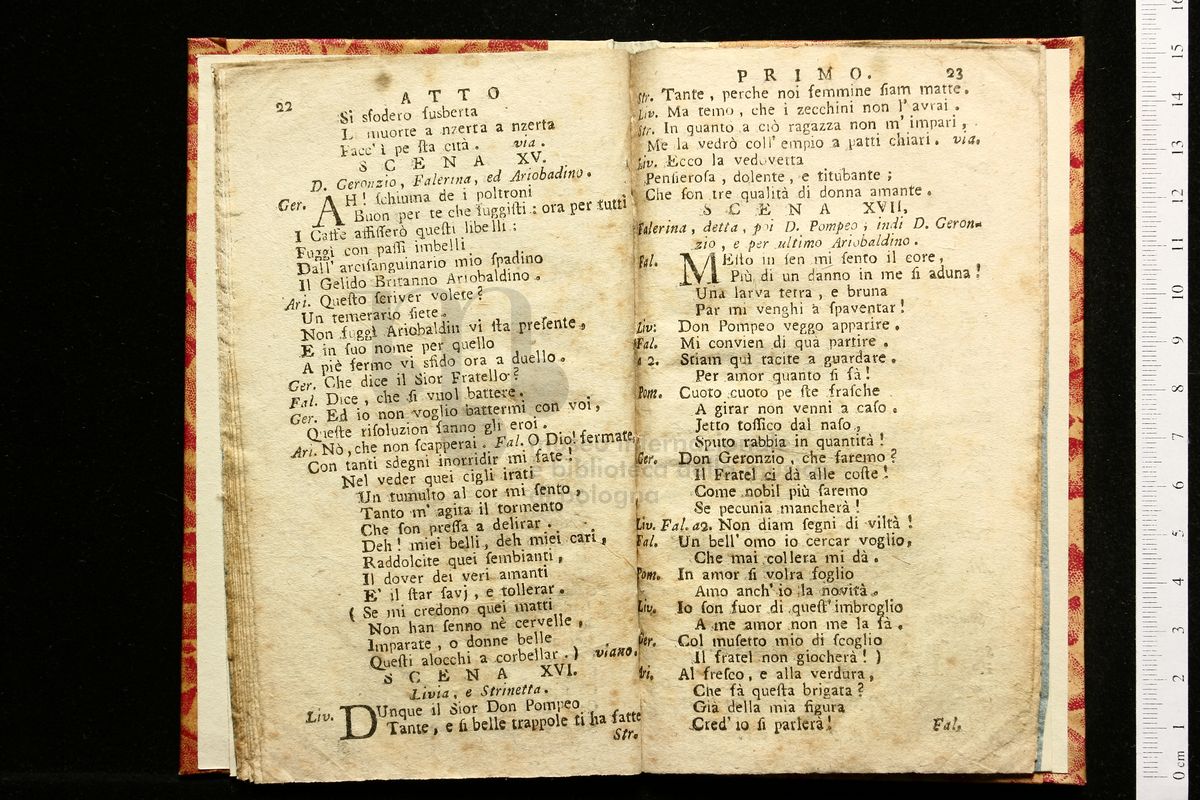 22
ATTO
Si sfodero susberta
L muorte a nzerta a nzerta
Facc' i pe sta cità. via.
SCENA XV.
D. Geronzio, Falerina, ed Ariobadino.
Ger. AH! schiuma de i poltroni
Buon per te che fuggisti: ora per tutti
I Caffe affisserò questi libelli:
Fuggì con passi imbelli
Dall' arcisanguinario mio spadino
Il Gelido Britanno Ariobaldino.
Ari. Questo scriver volete?
Un temerario siete.
Non fuggì Ariobaldin vi sta presente,
E in suo nome per quello
A piè fermo vi sfido ora a duello.
Ger. Che dice il Sior Fratello?
Fal. Dice, che si vuol battere.
Ger. Ed io non voglio battermi con voi,
Queste risoluzion fanno gli eroi.
Ari. Nò, che non scapperai. Fal. O Dio! fermate,
Con tanti sdegni inorridir mi fate!
Nel veder quei cigli irati
Un tumulto al cor mi sento,
Tanto m' agita il tormento
Che son pressa a delirar.
Deh! miei belli, deh miei cari,
Raddolcite quei sembianti,
Il dover dei veri amanti
E' il star savj, e tollerar.
( Se mi credono quei matti
Non han senno nè cervelle,
Imparate, o donne belle
Questi alocchi a corbellar.) viano.
SCENA XVI.
Livia, e Strinetta.
Liv. DUnque il Sior Don Pompeo
Tante, e si belle trappole ti ha fatte
Str.
PRIMO. 23
Str. Tante, perche noi femmine siam matte.
Liv. Ma temo, che i zecchini non l' avrai.
Str. In quanto a ciò ragazza non m' impari,
Me la vedrò coll' empio a patti chiari. via.
Liv. Ecco la vedovetta
Pensierosa, dolente, e titubante;
Che son tre qualità di donna amante.
SCENA XVII,
Falerina, detta, poi D. Pompeo; indi D. Geron-
zio, e per ultimo Ariobaldino.
Fal. MEsto in sen mi sento il core,
Più di un danno in me si aduna!
Una larva tetra, e bruna
Par mi venghi a spaventar!
Liv: Don Pompeo veggo apparire.
Fal. Mi convien di quà partire.
a 2. Stiam quì tacite a guardare.
Per amor quanto si fà!
Pom. Cuoto cuoto pe ste frasche
A girar non venni a caso.
Jetto tossico dal naso,
Sputo rabbia in quantità!
Ger. Don Geronzio, che faremo?
Il Fratel ci dà alle coste!
Come nobil più faremo
Se pecunia mancherà!
Liv. Fal. a2. Non diam segni di viltà!
Fal. Un bell' omo io cercar voglio,
Che mai collera mi dà.
Pom. In amor si volta foglio
Amo anch' io la novità.
Liv. Io son fuor di quest' imbroglio
A me amor non me la fà.
Ger. Col musetto mio di scoglio
Il fratel non giocherà!)
Ari. Al fresco, e alla verdura,
Che fà questa brigata?
Già della mia figura
Cred' io si parlerà!
Fal.